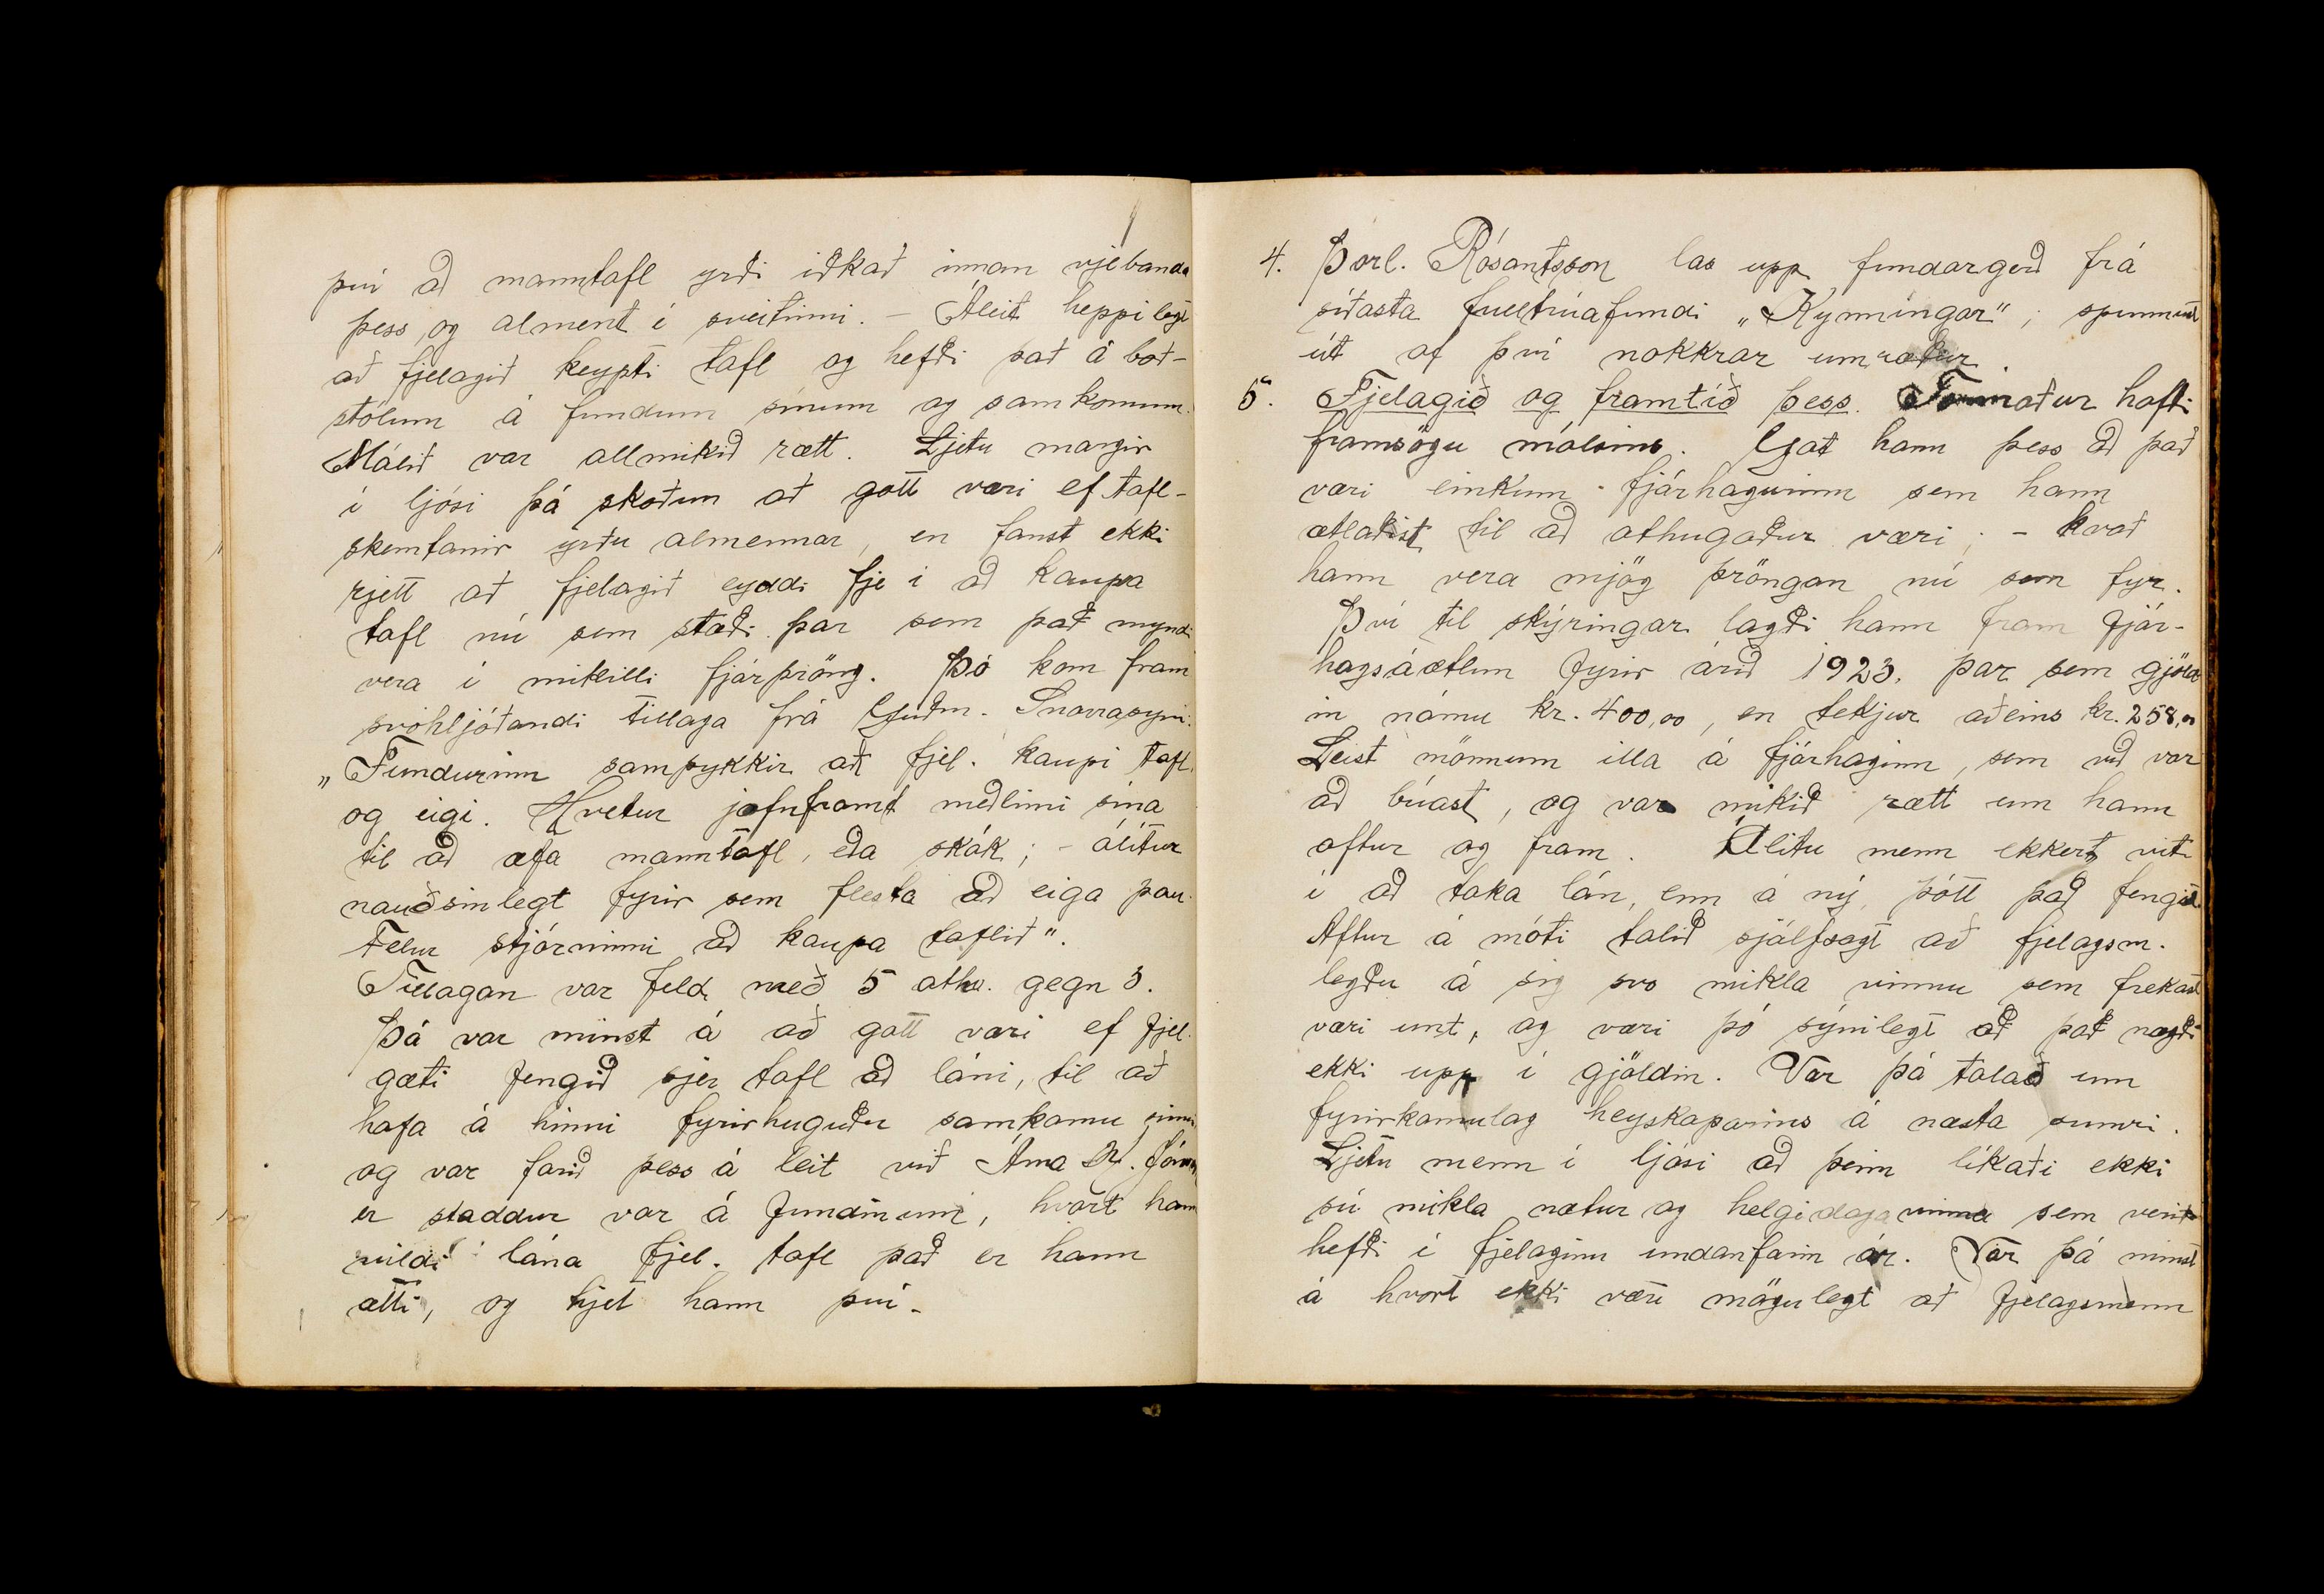 því að manntafl yrði iðkað innan vjebanda
þess, og alment í sveitinni. - Áleit heppilegt
að fjelagið keypti tafl og hefði það á boð-
stólum á fundum sínum og samkomum.
Málið var allmikið rætt. Ljetu margir
í ljósi þá skoðun að gott væri ef tafl-
skemtanir yrðu almennar, en fanst ekki
rjett að fjelagið eyddi fje í að kaupa
tafl nú sem stæði þar sem það myndi
vera í mikilli fjárþröng. Þó kom fram
svohljóðandi tillaga frá Guðm. Snorrasyni:
„Fundurinn samþykkir að fjel. kaupi tafl
og eigi. Hvetur jafnframt meðlimi sína
til að æfa manntafl, eða skák; - álítur
nauðsinlegt fyrir sem flesta að eiga þau.
Felur stjórninni að kaupa taflið".
Tillagan var feld með 5 atkv. gegn 3.
Þá var minst á að gott væri ef fjel.
gæti fengið sjer tafl að láni, til að
hafa á hinni fyrirhuguðu samkomu sinni
og var farið þess á leit við Árna
er staddur var á fundinum, hvort hann
vildi lána fjel. tafl það er hann
ætti, og hjet hann því.
4. Þorl. Rósantsson las upp fundargerð frá
síðasta fulltrúafundi „Kynningar"; spunnust
út af því nokkrar umræður
5. Fjelagið og framtíð þess. Formaður hafði
framsögu málsins. Gat hann þess að það
væri einkum fjárhagurinn sem hann
ætlaðist til að athugaður væri; - kvað
hann vera mjög þröngan nú sem fyr.
Því til skýringar lagði hann fram fjár-
hagsáætlun fyrir árið 1923, þar sem gjöld-
in námu kr. 400,00, en tekjur aðeins kr. 258,00
Leist mönnum illa á fjárhaginn, sem við var
að búast, og var mikið rætt um hann
aftur og fram. Álitu menn ekkert vit
í að taka lán, enn á ný, þótt það fengist.
Aftur á móti talið sjálfsagt að fjelagsm.
legðu á sig svo mikla vinnu sem frekast
væri unt, og væri þó sýnilegt að það nægði
ekki upp í gjöldin. Var þá talað um
fyrirkomulag heyskaparins á næsta sumri.
Ljetu menn í ljósi að þeim líkaði ekki
sú mikla nætur og helgidagavinna sem verið
hefði í fjelaginu undanfarin ár. Var þá minst
á hvort ekki væri mögulegt að fjelagsmenn